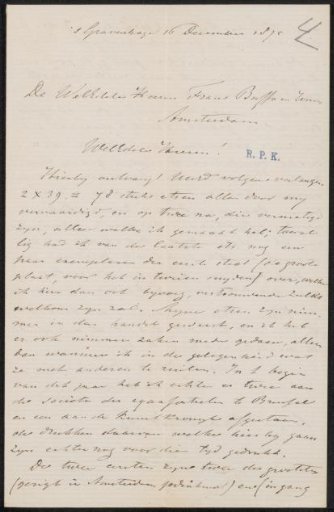 's Gravenhage 16 December 187
4
De WelEdele Heeren Frans Buffa en Zonen
Amsterdam
WelEdele Heeren!
R.P.K.
Hierbij ontvangt UwEd volgens verlangen
2 x 39 = 78 stuks etsen allen door mij
vervaardigd, en op twee na, die vernietigd
zijn, allen welke ik gemaakt heb;
had ik van de laatste ets nog een
paar exemplaren der eerste staat
plaat, voor het in twee over, welke
ik hier dan ook bijvoeg, vertrouwende zulks
welkom zijn zal. Mijne etsen zijn nim-
mer in den handel geweest, en ik heb
er ook nimmer zaken mede gedaan, alleen
ben wanneer ik in de gelegenheid was
ze met anderen te ruilen. In 't begin
van dit jaar heb ik echter er twee aan
de Société des aquafortistes te Brussel
en een aan de Kunstkronijk afgestaan,
de drukken daarvan welke hier bij gaan
zijn echter nog voor dien tijd gedrukt.
De twee eersten zijn twee der grootsten
(gezigt in Amsterdam) en (ingang